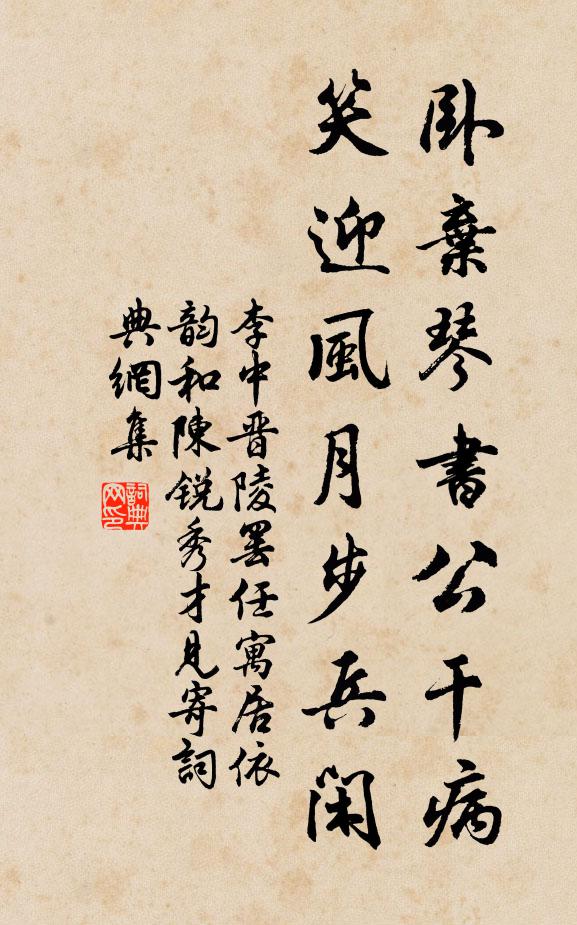 卧棄琴書公干病
笑迎風月步兵閑
李中晋陵罷任寓居依
韵和陳銳秀才見寄詞
典網集
詞典
网印